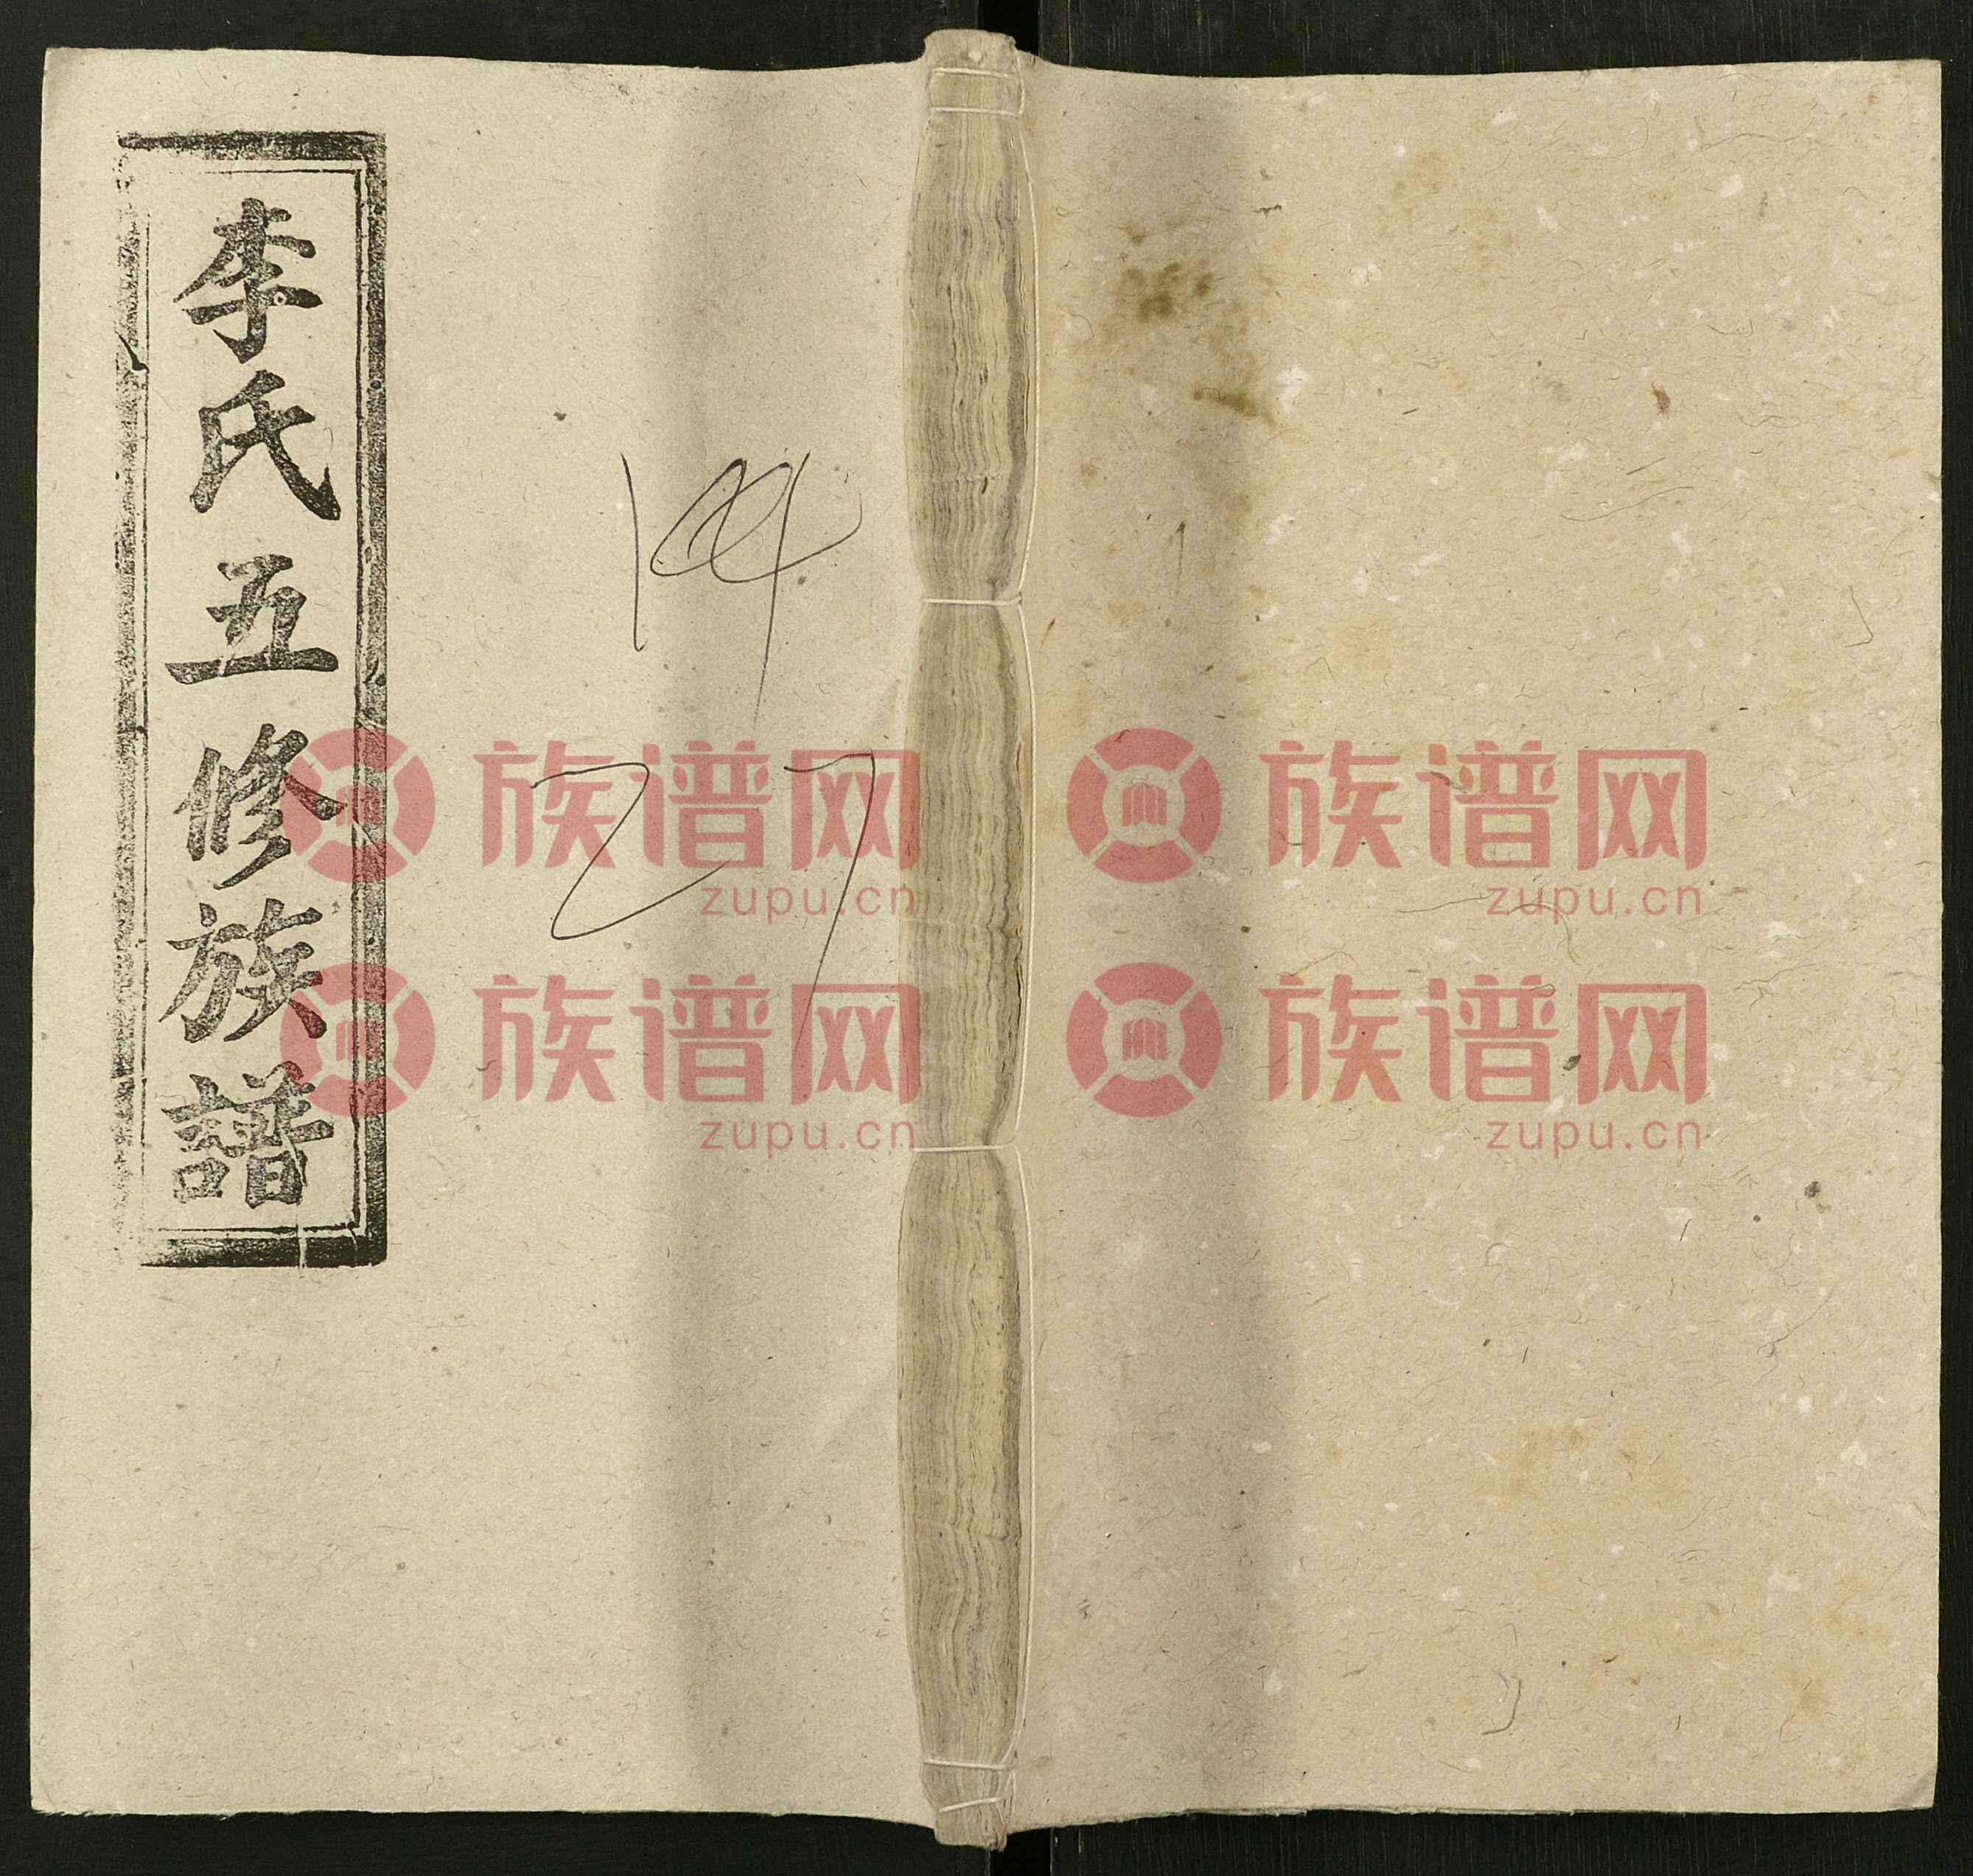 李氏五修族譜
27
族谱网
zupu.cn
族谱网
zupu.cn
族谱网
zupu.cn
族谱网
zupu.cn